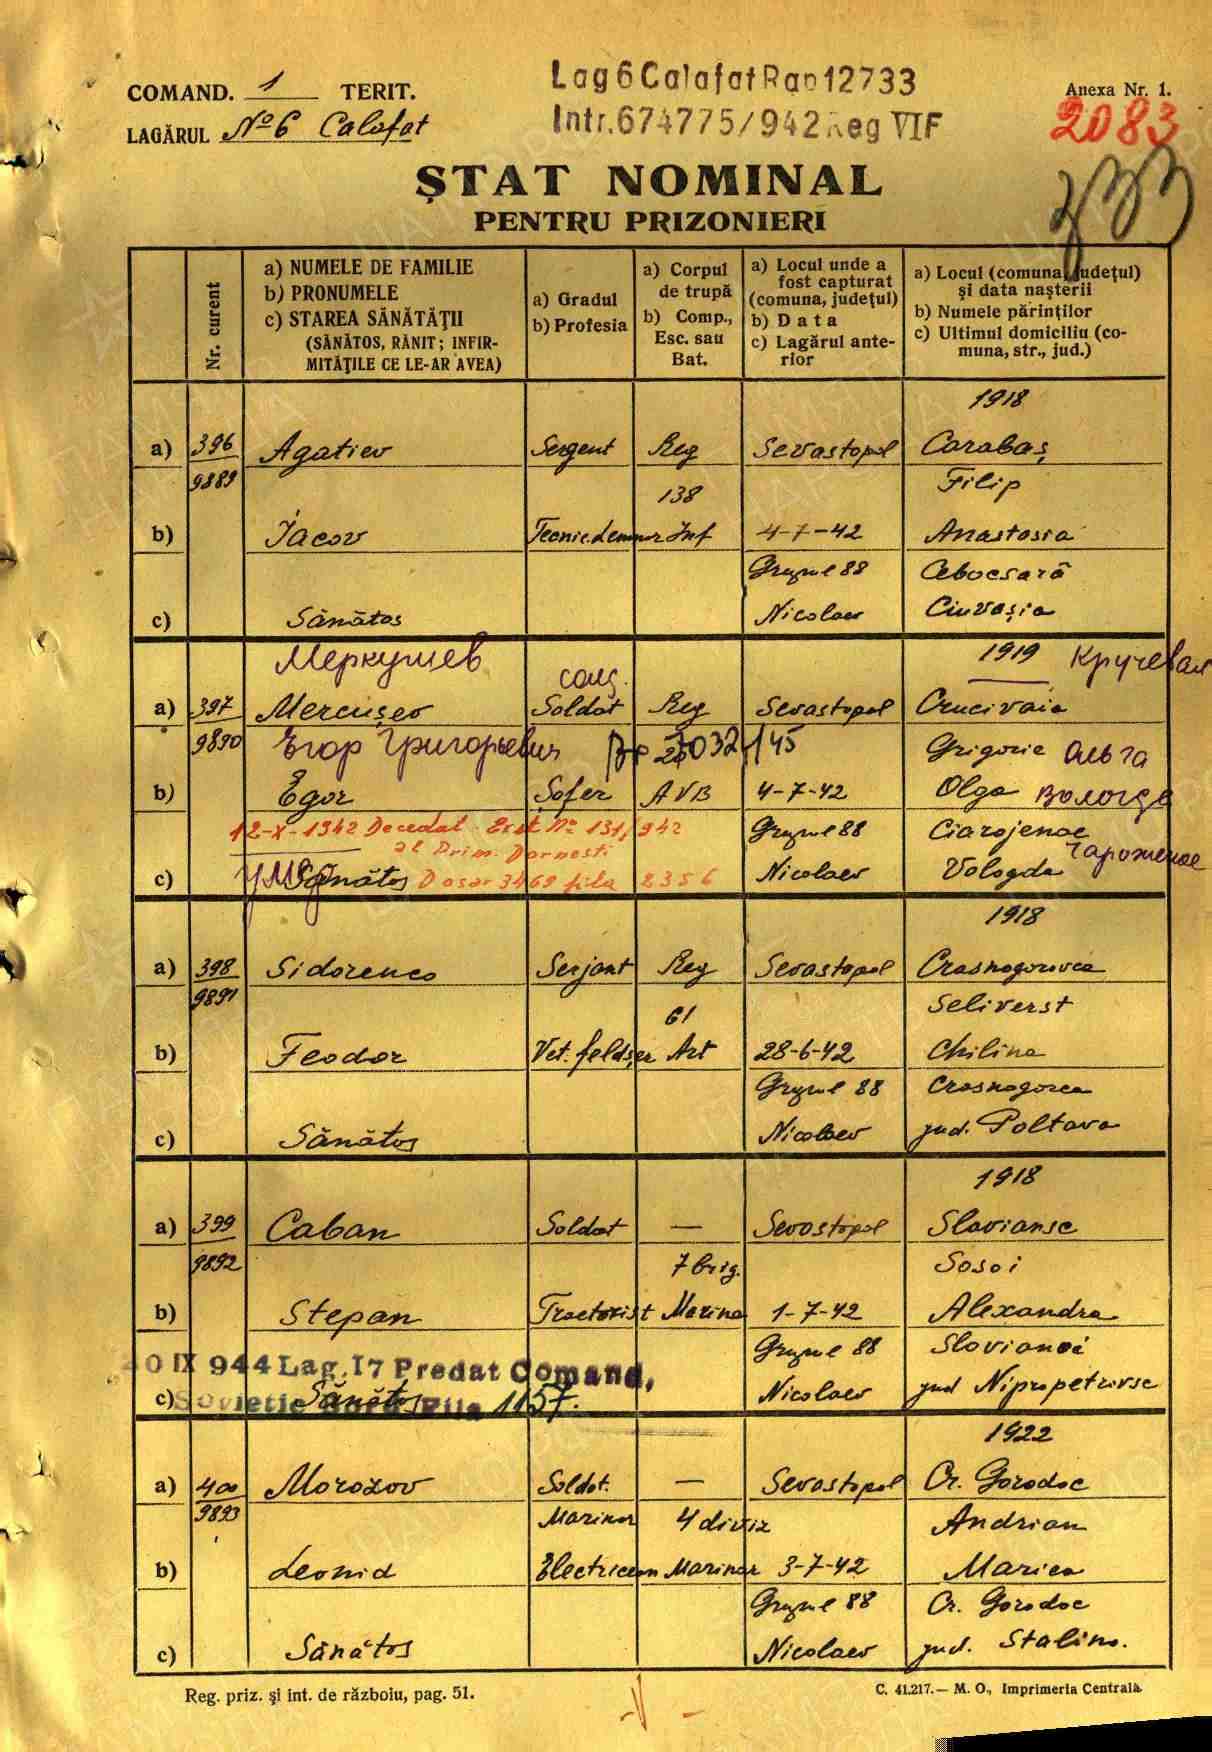 COMAND. 1 TERIT.
LAGĂRUL No 6 Calafat
Lag 6 Calafat Rap 12733
Intr. 674775/942 Reg VIF
Anexa Nr. 1.
2083
ȘTAT NOMINAL
PENTRU PRIZONIERI
Nr. curent
a) NUMELE DE FAMILIE
b) PRONUMELE
c) STAREA SĂNĂTĂŢII
(SĂNĂTOS, RĂNIT; INFIR-
MITĂŢILE CE LE-AR AVEA)
a) Gradul
b) Profesia
a) Corpul
de trupă
b) Comp.,
Esc. sau
Bat.
a) Locul unde a
fost capturat
(comuna, judeţul)
b) Data
c) Lagărul ante-
rior
a) Locul (comuna, judeţul)
şi data naşterii
b) Numele părinţilor
c) Ultimul domiciliu (co-
muna, str., jud.)
1918
a) 396 Agatiev Sergent Reg Sevastopol Carabaş
9889 138 Filip
b) Iacov Tecnic.lemnar Inf 4-7-42 Anastasia
Grupul 88 Cebocsară
c) Sănătos Nicolaev Ciuvaşia
Меркушев 1919 Кручевая
солд.
a) 397 Mercuşev Soldat Reg Sevastopol Crucivaia
9890 Егор Григорьевич 145 Grigorie Ольга
b) Egor Şofer AVB 4-7-42 Olga Вологда
12-X-1942 Decedat Ext No 131/942 Grupul 88 Ciarojenoe
al Prim. Dornesti Чарожное
c) умер Sănătos Dosar 3469 fila 2356 Nicolaev Vologda
1918
a) 398 Sidorenco Serjant Reg Sevastopol Crasnogorovca
9891 61 Seliverst
b) Feodor Vet. feldşer Art 28-6-42 Chilina
Grupul 88 Crasnogorca
c) Sănătos Nicolaev jud. Poltava
1918
a) 399 Caban Soldat — Sevastopol Slaviansc
9892 7 brig. Sosoi
b) Stepan Tractorist Marina 1-7-42 Alexandra
Grupul 88
30 IX 944 Lag. 17 Predat Comand,
c) Sănătos Nicolaev jud Nipropetrovsc
Sovietic Fila 1157.
1922
a) 400 Morozov Soldat. — Sevastopol Cr. Gorodoc
9893 Marinar 4 diviz Andrian
b) Leonid Electricean Marinar 3-7-42 Marica
Grupul 88 Cr. Gorodoc
c) Sănătos Nicolaev jud. Stalino.
Reg. priz. şi int. de războiu, pag. 51.
C. 41.217.— M. O., Imprimeria Centrală.